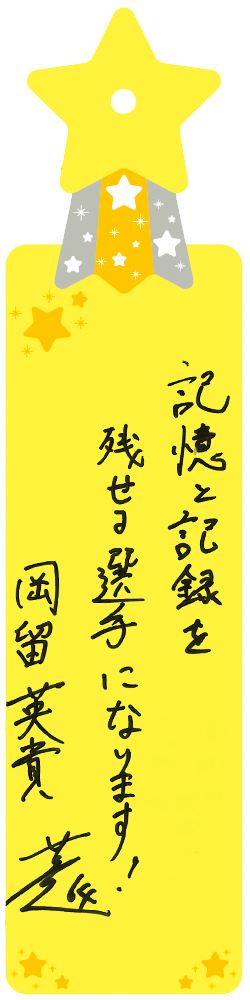 記憶と記録を
残せる選手になります!
岡留英貴
64